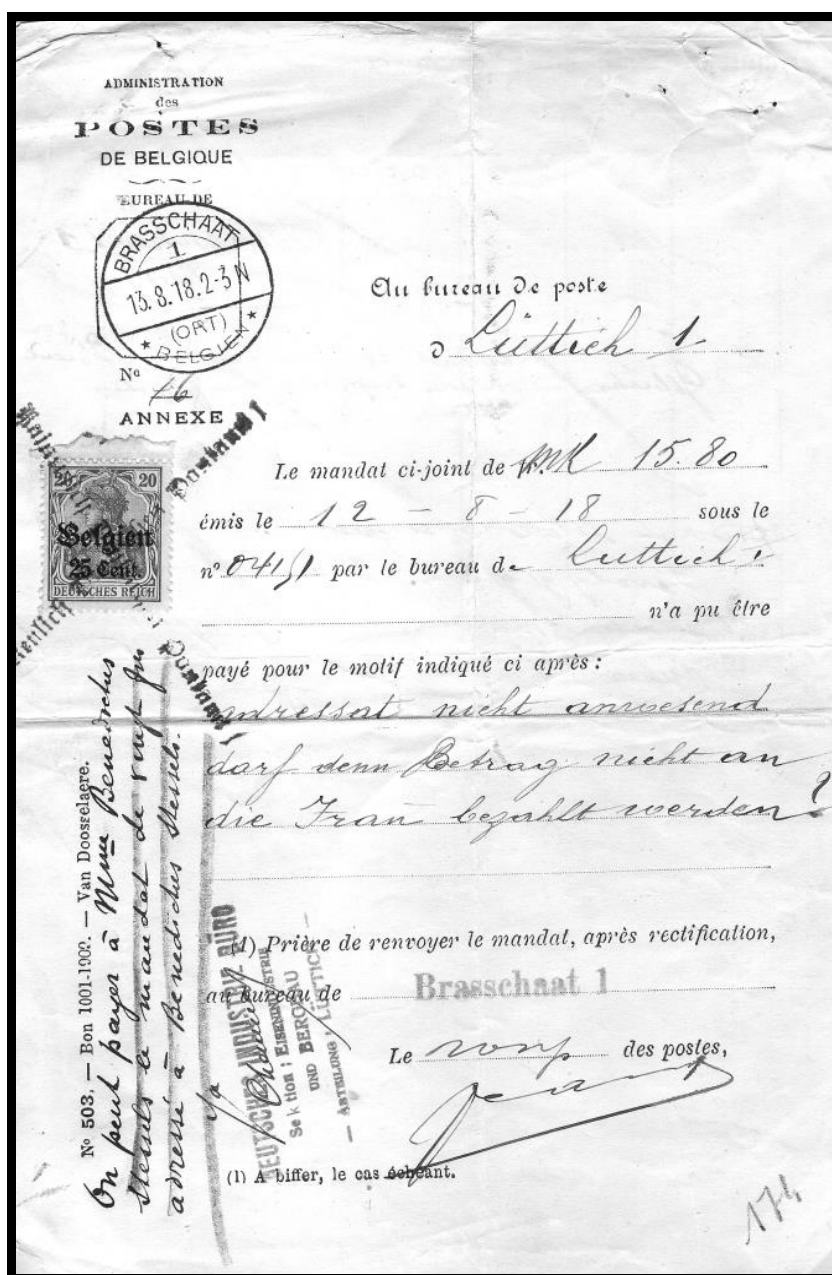 ADMINISTRATION
des
POSTES
DE BELGIQUE
BUREAU DE
BRASSCHAAT
1
13.8.18.2-3 N
(ORT)
* BELGIEN *
No 76
ANNEXE
Au bureau de poste
d Lüttich 1
20 20
Belgien
25 Cent.
DEUTSCHES REICH
Postamt 1
Postamt 1
Le mandat ci-joint de MK 15.80
émis le 12 - 8 - 18 sous le
no par le bureau de Luttich 1
n'a pu être
payé pour le motif indiqué ci après:
adressat nicht anwesend
darf denn Betrag nicht an
die Frau bezahlt werden?
(1) Prière de renvoyer le mandat, après rectification,
au bureau de Brasschaat 1
Le des postes,
(1) A biffer, le cas échéant.
No 503. — Bon 1001-1902. — Van Doosselaere.
On peut payer à Mme Benedictus
Stessels le mandat de vingt fr
adressé à Benedictus Stessels.
DEUTSCHE INDUSTRIE BÜRO
Sektion: EISENINDUSTRIE
UND BERGBAU
— ABTEILUNG LÜTTICH —
174